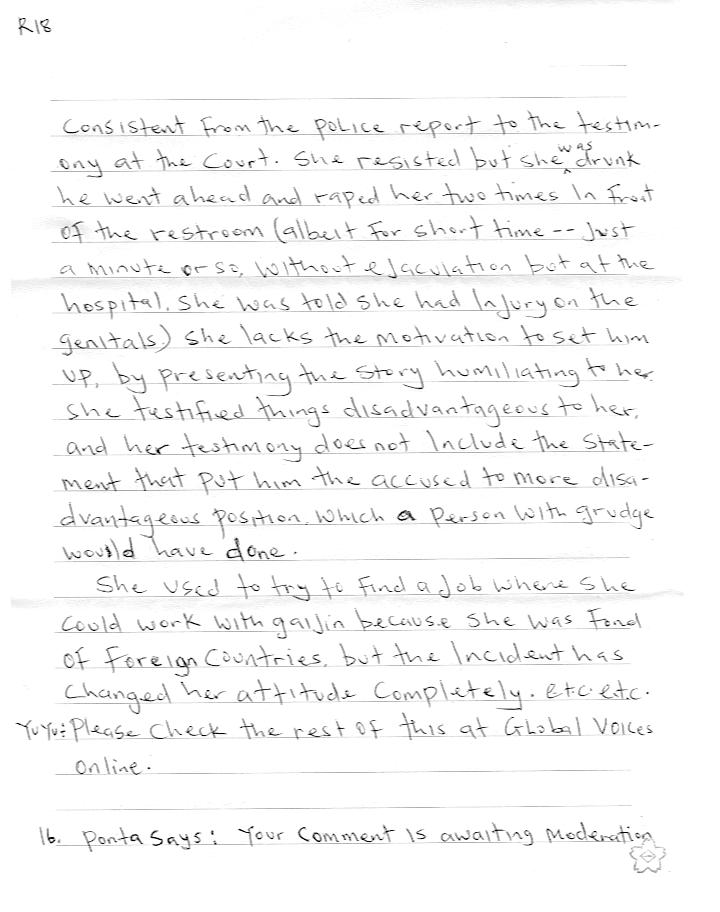 R18
Consistent from the police report to the testim-
ony at the Court. She resisted but she was drunk
he went ahead and raped her two times In front
of the restroom (albeit for short time -- Just
a minute or so, without ejaculation but at the
hospital, she was told she had Injury on the
genitals.) She lacks the motivation to set him
up, by presenting the story humiliating to her.
She testified things disadvantageous to her,
and her testimony does not Include the State-
ment that put him the accused to more disa-
dvantageous position, which a person with grudge
would have done.
She used to try to find a Job where she
could work with gaijin because she was Fond
of Foreign Countries, but the Incident has
changed her attitude Completely. etc. etc.
YuYu: Please Check the rest of this at Global Voices
Online.
16. Ponta Says: Your Comment Is awaiting Moderation